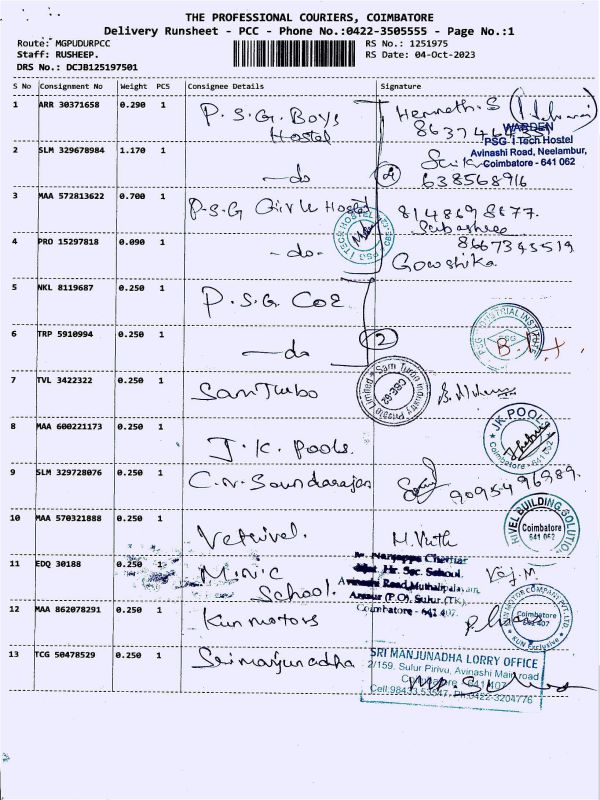 THE PROFESSIONAL COURIERS, COIMBATORE
Delivery Runsheet - PCC - Phone No.:0422-3505555 - Page No.:1
Route: MGPUDURPCC
RS No.: 1251975
Staff: RUSHEEP.
RS Date: 04-Oct-2023
DRS No.: DCJB125197501
S No Consignment No Weight PCS Consignee Details Signature
1 ARR 30371658 0.290 1 P.S.G. Boys Hemnath.S
Hostel
WARDEN
PSG iTech Hostel
Avinashi Road, Neelambur,
Coimbatore - 641 062
2 SLM 329678984 1.170 1 -do 4
638568916
3 MAA 572813622 0.700 1 P.S.G Girls Hostel
PSG iTECH HOSTEL
4 PRO 15297818 0.090 1 -do- 8667343519
Gowshika.
5 NKL 8119687 0.250 1 P.S.G COE
6 TRP 5910994 0.250 1 -do 2
PSG INDUSTRIAL INSTITUTE
PSG
7 TVL 3422322 0.250 1 Sam Turbo
Sam Turbo Industry Private Limited
8 MAA 600221173 0.250 1 J.K. Pools.
JK POOLS
Coimbatore - 641 062
9 SLM 329728076 0.250 1 C.N. Soundarajan 9095496989.
10 MAA 570321888 0.250 1 Vetrivel.
BUILDING SOLUTION
Coimbatore
641 062
11 EDQ 30188 0.250 1 M.N.C
School.
Hr. Sec. School.
Avinashi Road, Muthalipalayam,
Arasur (P.O), Sulur (TK),
Coimbatore - 641 407.
12 MAA 862078291 0.250 1 Kun motors
KUN MOTOR COMPANY PVT. LTD.
Coimbatore
641 407
KUN Exclusive
13 TCG 50478529 0.250 1 Sri manjunadha
SRI MANJUNADHA LORRY OFFICE
2/159, Sulur Pirivu, Avinashi Main road
Coimbatore - 641 407
Ph:0422-3204776